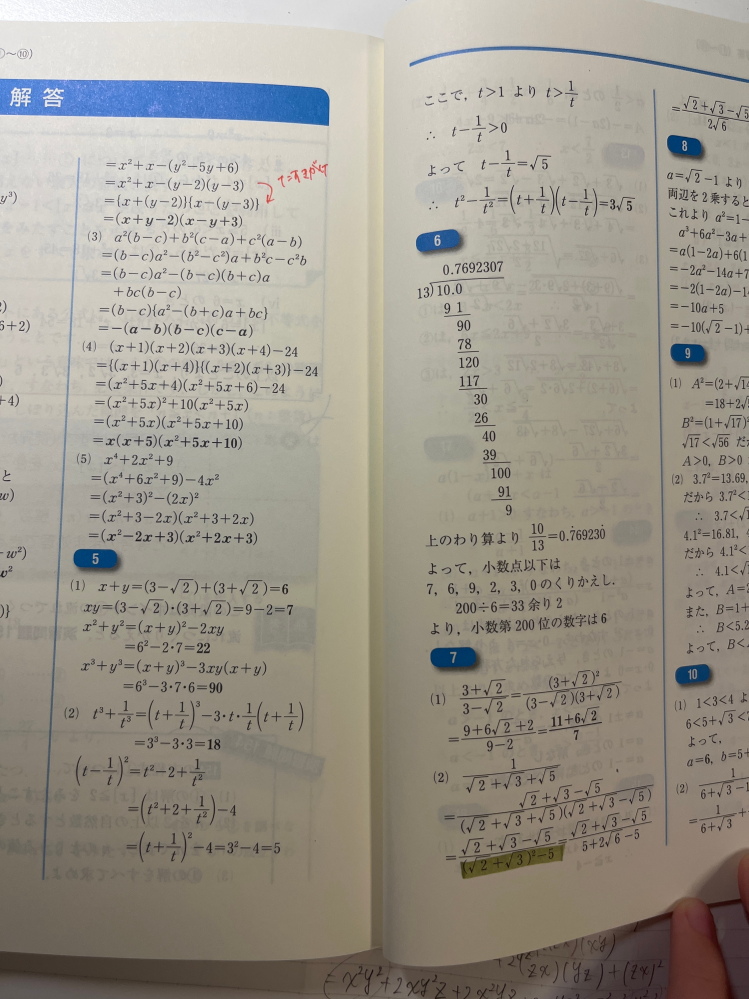 ①~⑩)
解答
y³)
2)
6+2)
+4)
と
w)
-w²)
v²
)}
=x²+x-(y²-5y+6)
=x²+x-(y-2)(y-3)
={x+(y-2)}{x-(y-3)}
=(x+y-2)(x-y+3)
(3) a²(b-c)+b²(c-a)+c²(a-b)
=(b-c)a²-(b²-c²)a+b²c-c²b
=(b-c)a²-(b-c)(b+c)a
+bc(b-c)
=(b-c){a²-(b+c)a+bc}
=-(a-b)(b-c)(c-a)
(4) (x+1)(x+2)(x+3)(x+4)-24
={(x+1)(x+4)}{(x+2)(x+3)}-24
=(x²+5x+4)(x²+5x+6)-24
=(x²+5x)²+10(x²+5x)
=(x²+5x)(x²+5x+10)
=x(x+5)(x²+5x+10)
(5) x⁴+2x²+9
=(x⁴+6x²+9)-4x²
=(x²+3)²-(2x)²
=(x²+3-2x)(x²+3+2x)
=(x²-2x+3)(x²+2x+3)
5
(1) x+y=(3-√2)+(3+√2)=6
xy=(3-√2)·(3+√2)=9-2=7
x²+y²=(x+y)²-2xy
=6²-2·7=22
x³+y³=(x+y)³-3xy(x+y)
=6³-3·7·6=90
(2) t³+1/t³=(t+1/t)³-3·t·1/t(t+1/t)
=3³-3·3=18
(t-1/t)²=t²-2+1/t²
=(t²+2+1/t²)-4
=(t+1/t)²-4=3²-4=5
ここで, t>1 より t>1/t
∴ t-1/t>0
よって t-1/t=√5
∴ t²-1/t²=(t+1/t)(t-1/t)=3√5
6
0.7692307
13)10.0
9 1
90
78
120
117
30
26
40
39
100
91
9
上のわり算より 10/13=0.7̇69230̇
よって, 小数点以下は
7, 6, 9, 2, 3, 0のくりかえし.
200÷6=33 余り 2
より, 小数第200位の数字は6
7
(1) (3+√2)/(3-√2)=(3+√2)²/((3-√2)(3+√2))
=(9+6√2+2)/(9-2)=(11+6√2)/7
(2) 1/(√2+√3+√5)
=(√2+√3-√5)/((√2+√3+√5)(√2+√3-√5))
=(√2+√3-√5)/((√2+√3)²-5)=(√2+√3-√5)/(5+2√6-5)
=(√2+√3-√5)/(2√6)
8
a=√2-1 より
両辺を2乗すると
これより a²=1-
a³+6a²-3a+
=a(1-2a)+6(1
=-2a²-14a+7
=-2(1-2a)-14
=-10a+5
=-10(√2-1)+
9
(1) A²=(2+√14
=18+2√
B²=(1+√17)²
√17<√56 だか
A>0, B>0
(2) 3.7²=13.69,
だから 3.7²<1
∴ 3.7<√1
4.1²=16.81, 4
だから 4.1²<
∴ 4.1<√1
よって, A=2
また, B=1+
∴ B<5.2
よって, B<
10
(1) 1<3<4 よ
6<5+√3<7
よって,
a=6, b=5+
(2) 1/(6+√3-1
=1/(6+√3)+
zx)(yz)+(zx)²
=x²y²+2xy²z+2x²y